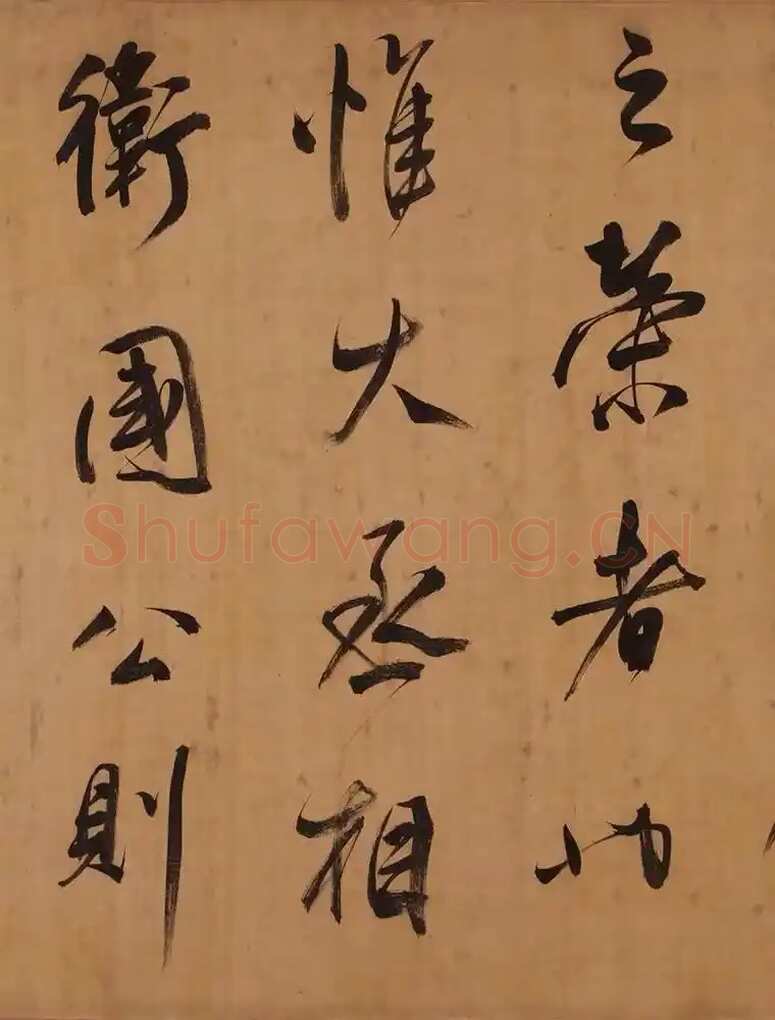 之榮者也
惟大丞相
衛國公則
Shufawang.CN